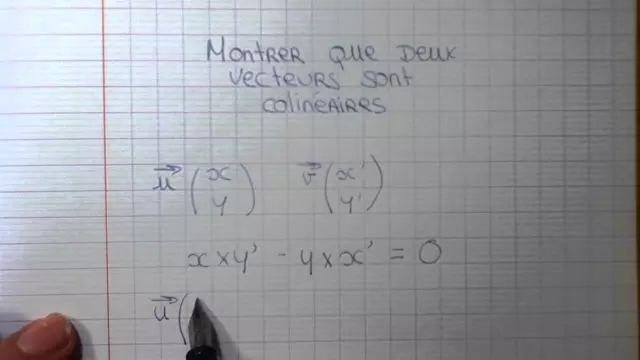 Montrer que deux
vecteurs sont
colinéaires
u⃗ (x y) v⃗ (x' y')
x × y' - y × x' = 0
u⃗ (